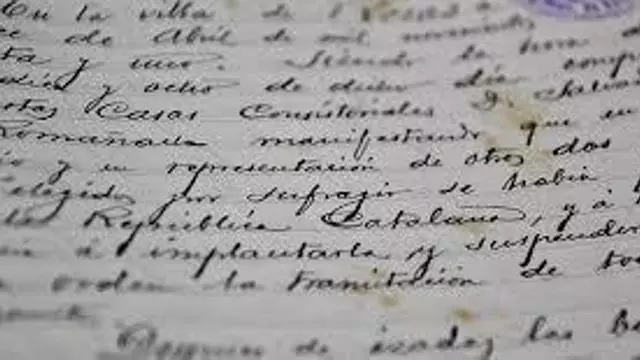 En la villa de
de Abril de mil novecientos
ta y uno. Siendo la hora
y ocho de dicho dia
Casas Consistoriales D.
Romañach manifestando que en
y en representación de otros dos
elegidos por sufragio se habia
la República Catalana, y á
á implantarla y suspender
orden la tramitación de
Despues de izadas las